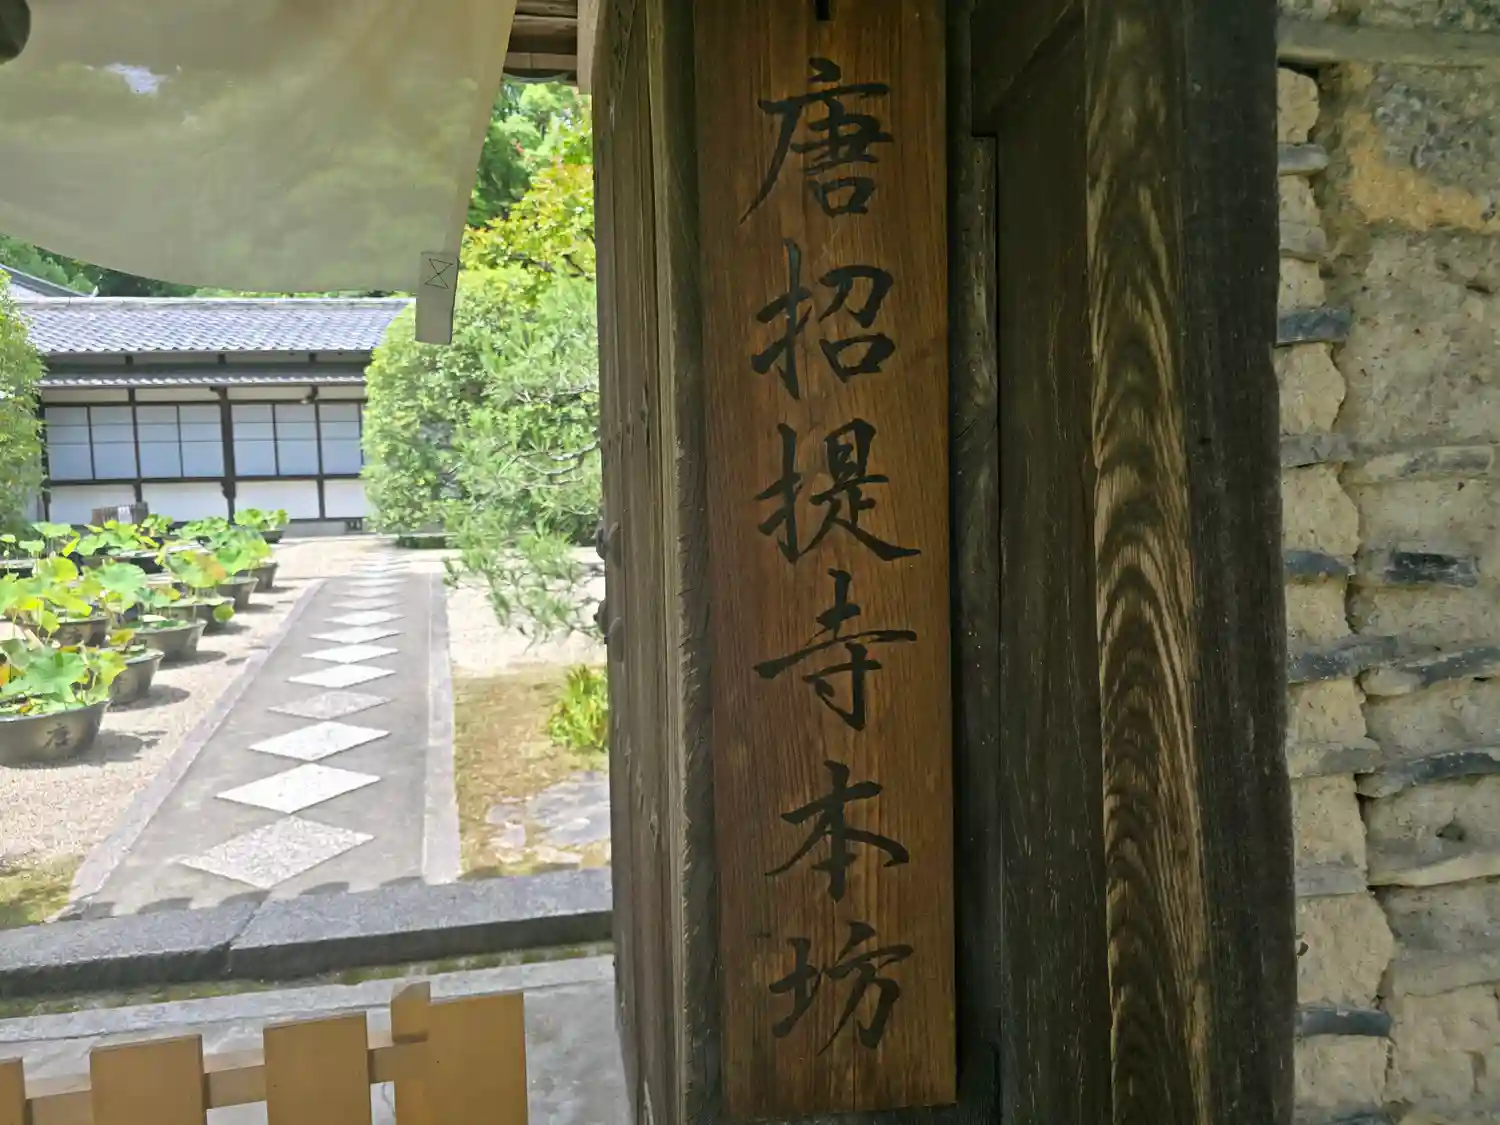 唐招提寺本坊
唐